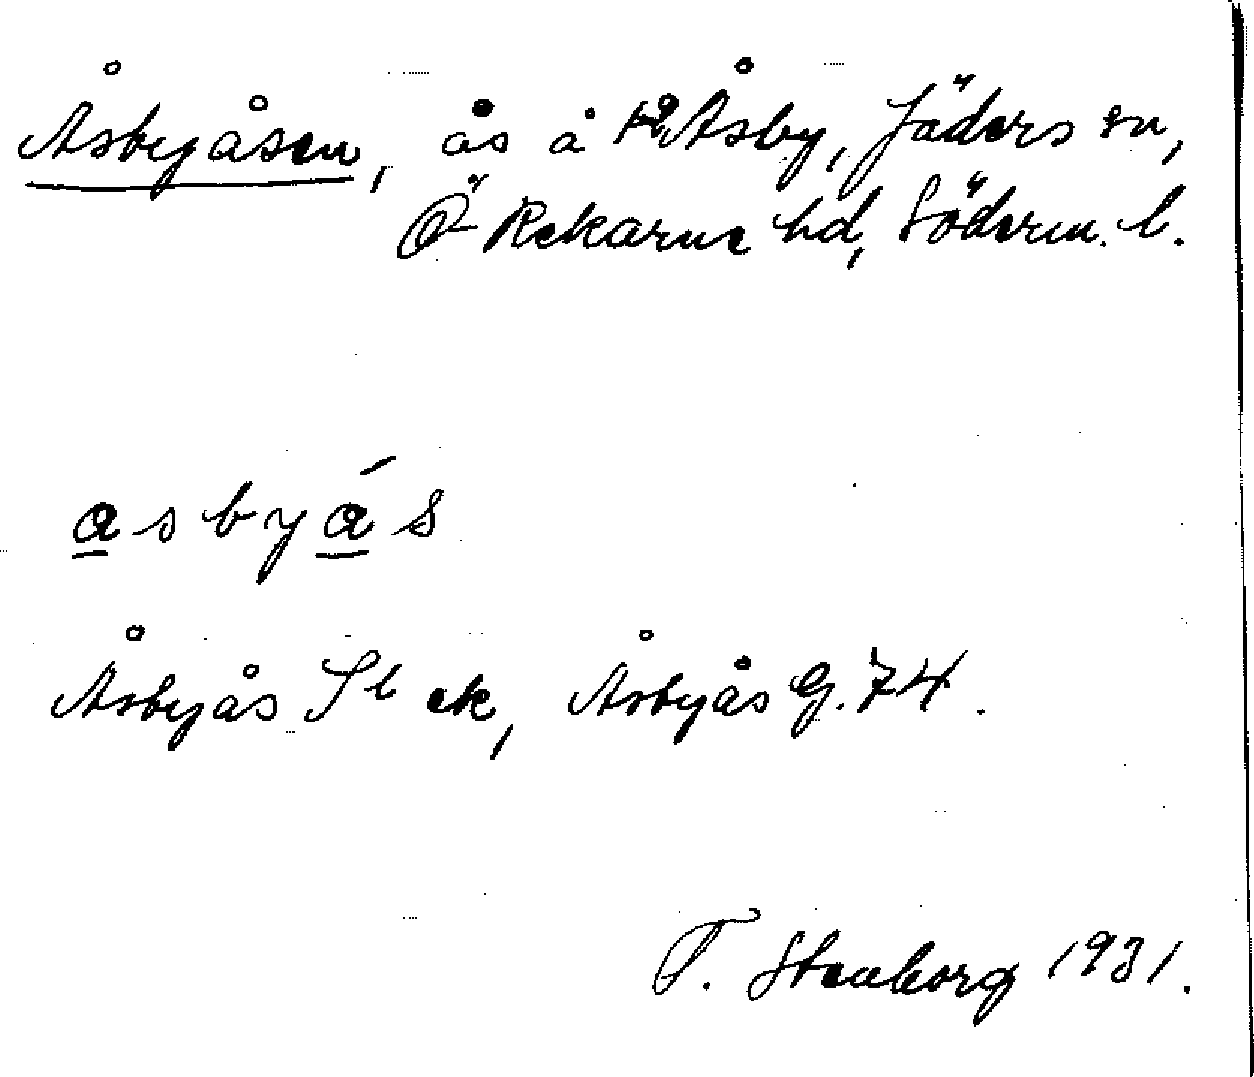 Åsbyåsen, ås å Åsby, Jäders sn,
Ö Rekarne hd, Söderm. l.
asbyás
Åsbyås ek, Åsbyås G. 74.
T. Stenborg 1931.